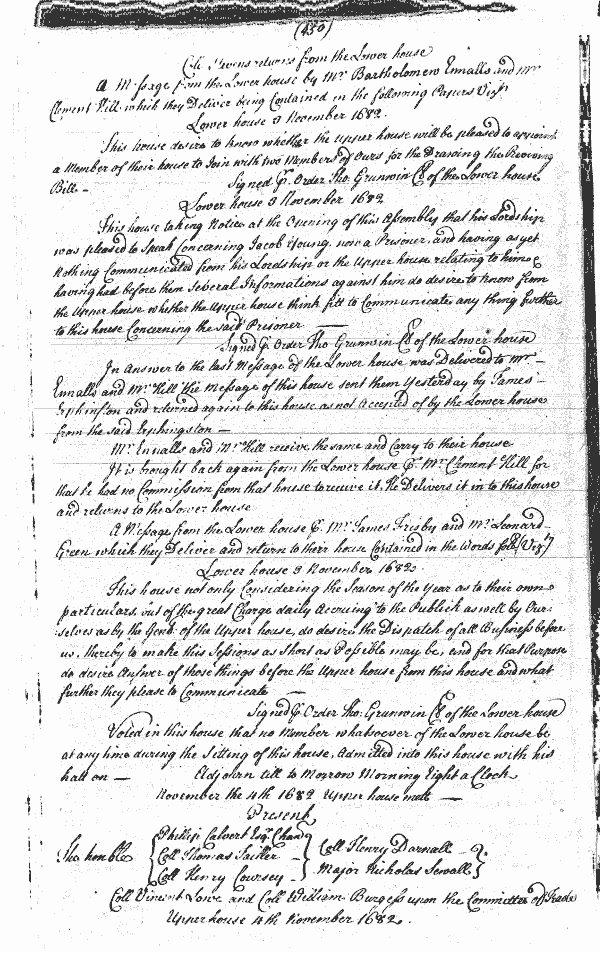 (450)
Coll Stevens returns from the Lower house
A Message from the Lower house by Mr Bartholomew Ennalls and mr
Clement Hill which they Deliver being Contained in the following Papers Vizt
Lower house 3 November 1682.
This house desire to know whether the upper house will be pleased to appoint
a Member of their house to Join with two Members of Ours for the Drawing the Reviving
Bill. Signed P. Order Tho. Grunwin Clk of the Lower house
Lower house 3 November 1682
This house taking Notice at the Opening of this Assembly that his Lordship
was pleased to Speak Concerning Jacob Young, now a Prisoner, and having as yet
Nothing Communicated from his Lordship or the Upper house relating to him &
having had before them Several Informations against him do desire to know from
the Upper house whether the Upper house think fitt to Communicate any thing further
to this house Concerning the said Prisoner —
Signed P. Order Tho Grunwin Clk of the Lower house
In Answer to the last Message of the Lower house was Delivered to mr
Ennalls and Mr Hill the Message of this house sent them Yesterday by James
and returned again to this house as not Accepted of by the Lower house
from the said —
Mr Ennalls and Mr Hill receive the same and Carry to their house
It is brought back again from the Lower house P. Mr Clement Hill for
that he had no Commission from that house to receive it. He Delivers it in to this house
and returns to the Lower house
A Message from the Lower house P. Mr James Frisby and Mr Leonard
Green which they Deliver and return to their house Contained in the Words foll. (Vizt)
Lower house 3 November 1682.
This house not only Considering the Season of the Year as to their own
particulars, but of the great Charge daily Accruing to the Publick as well by Our
selves as by the Gent. of the Upper house, do desire the Dispatch of all Business before
us, thereby to make this Sessions as Short as Possible may be, and for that Purpose
do desire Answer of those things before the Upper house from this house and what
further they please to Communicate —
Signed P. Order Tho. Grunwin Clk of the Lower house
Voted in this house that no Member whatsoever of the Lower house be
at any time during the Sitting of this house, Admitted into this house with his
hatt on — Adjourn till to Morrow Morning Eight a Clock
November the 4th 1682 Upper house mett —
Present
The honble Phillip Calvert Esqr Chanr
Coll Thomas Tailler Coll Henry Darnall
Coll Henry Coursey Major Nicholas Sewall
Coll Vincent Lowe and Coll William Burgess upon the Committee of Trade
Upper house 4th November 1682.